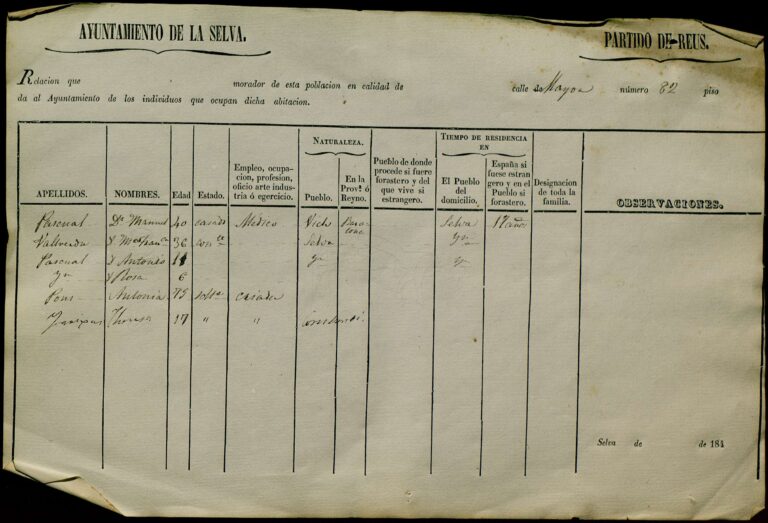 AYUNTAMIENTO DE LA SELVA.
PARTIDO DE REUS.
Relacion que morador de esta poblacion en calidad de calle de Mayor número 82 piso
da al Ayuntamiento de los individuos que ocupan dicha abitacion.
NATURALEZA.
TIEMPO DE RESIDENCIA EN
APELLIDOS.
NOMBRES.
Edad
Estado.
Empleo, ocupacion, profesion, oficio arte industria ó egercicio.
Pueblo.
En la Prov.ª ó Reyno.
Pueblo de donde procede si fuere forastero y del que vive si estrangero.
El Pueblo del domicilio.
España si fuese estrangero y en el Pueblo si forastero.
Designacion de toda la familia.
OBSERVACIONES.
Pascual Dn Manuel 40 casado Medico Vich Selva 17 años
Vallverdu 36 Selva Yn
Pascual Antonio Yn Yn
Yn Rosa 6
Pons Antonia 75 criada
Theresa 17 " "
Selva de de 184